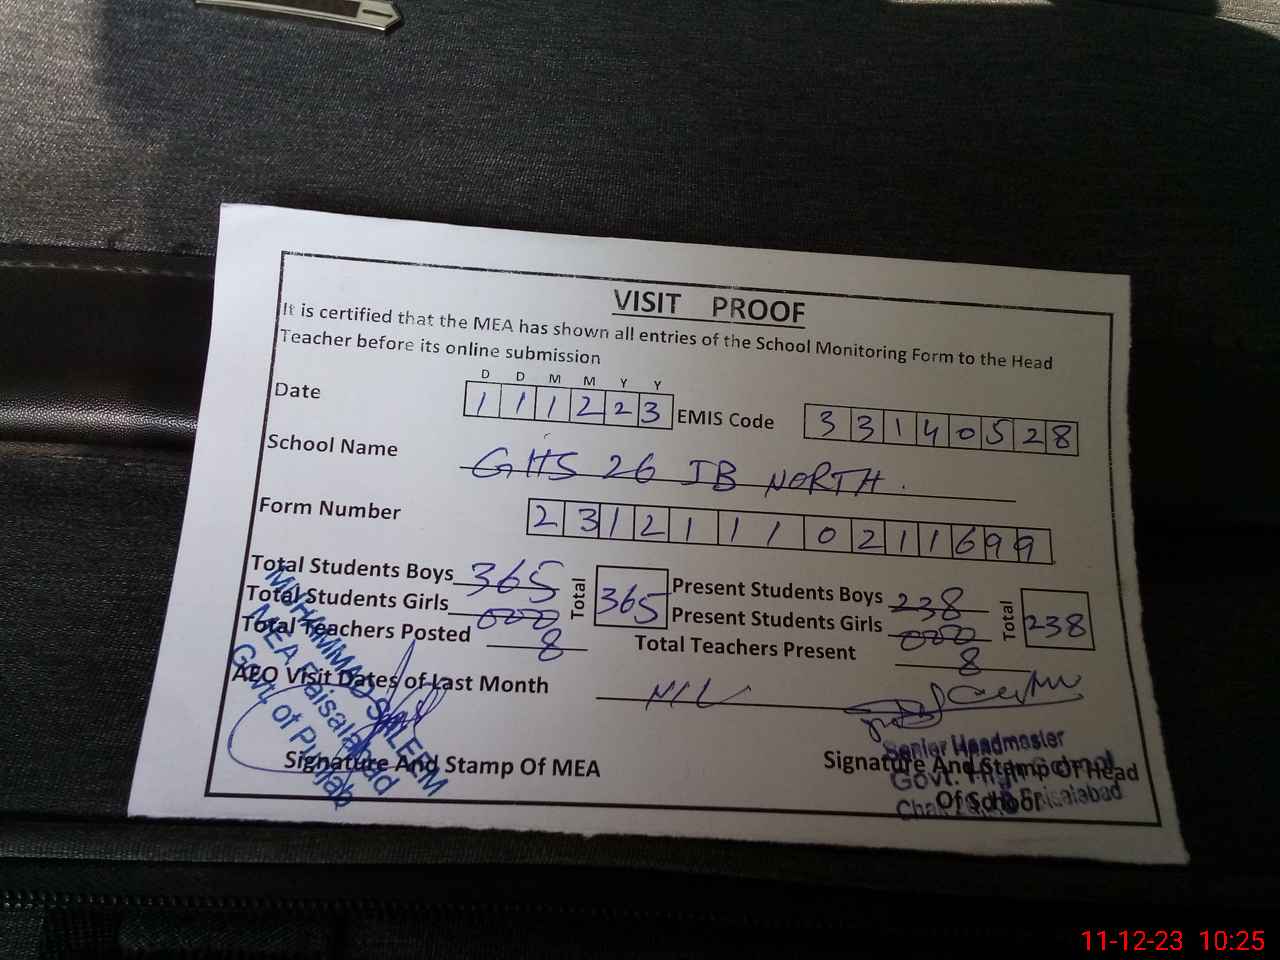 VISIT PROOF
It is certified that the MEA has shown all entries of the School Monitoring Form to the Head
Teacher before its online submission
D D M M Y Y
Date 1 1 1 2 2 3 EMIS Code 3 3 1 4 0 5 2 8
School Name GHS 26 JB NORTH.
Form Number 2 3 1 2 1 1 1 0 2 1 1 6 9 9
Total Students Boys 365 Total 365 Present Students Boys 238 Total 238
Total Students Girls 000 Present Students Girls 000
Total Teachers Posted 8 Total Teachers Present 8
AEO Visit Dates of Last Month NIL
MUHAMMAD SALEEM
MEA Faisalabad
Govt of Punjab
Signature And Stamp Of MEA
Senior Headmaster
Signature And Stamp Of Head
Govt. High School
Of School
Chak Faisalabad
11-12-23 10:25